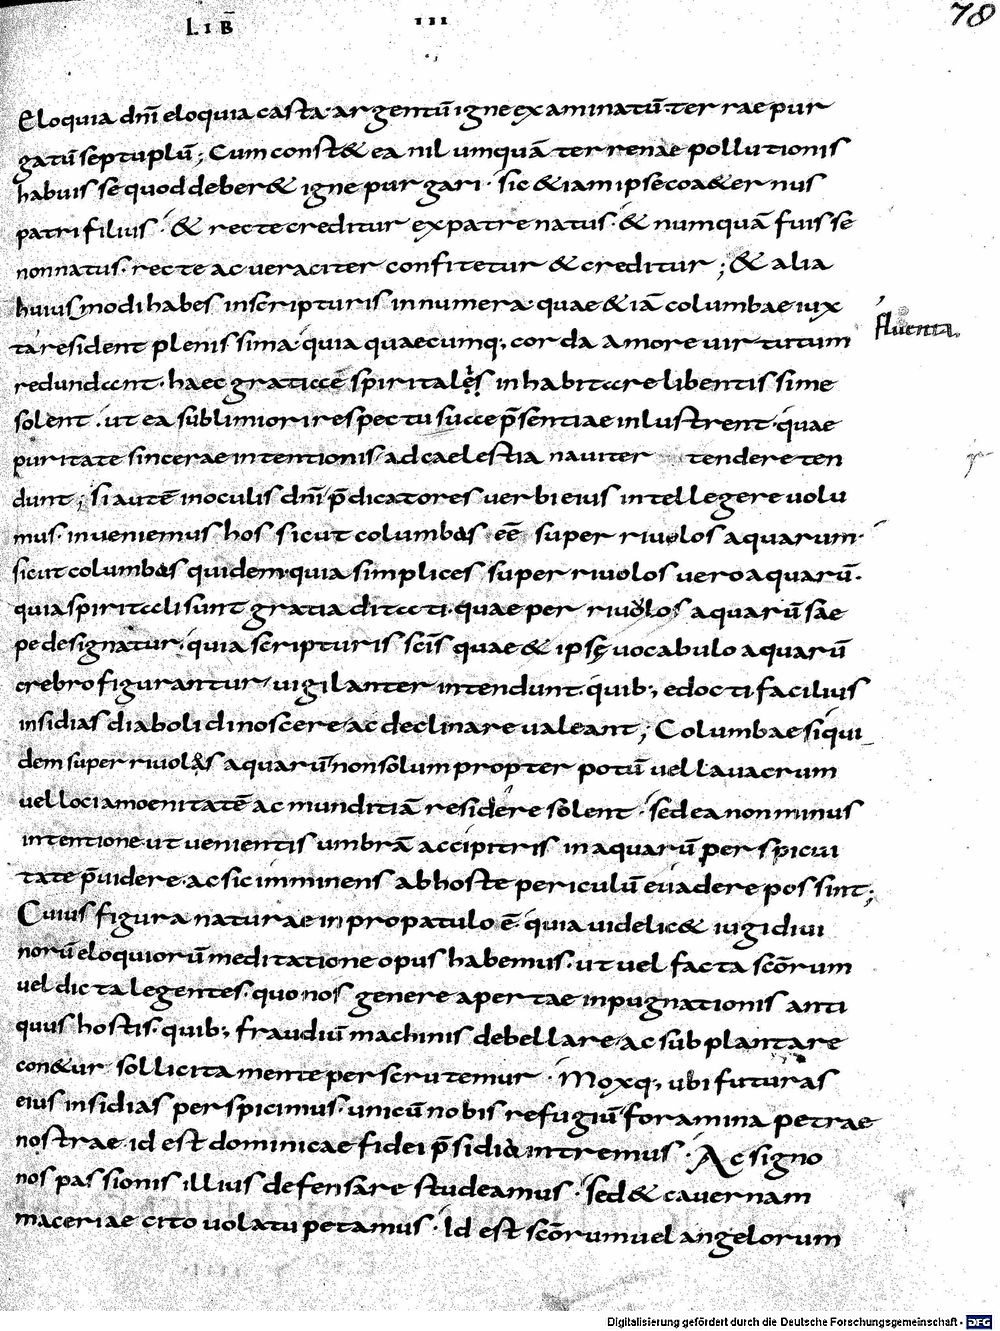 LIB̅ III
78
Eloquia dn̄i eloquia casta· argentū igne examinatū· terrae pur
gatū septuplū; Cum const& ea nil umquā terrenae pollutionis
habuisse quod deber& igne purgari· sic &iam ipse coa&ernus
patri filius· & recte creditur ex patre natus· & numquā fuisse
non natus· recte ac ueraciter confitetur & creditur; & alia
huiusmodi habes in scripturis innumera· quae &iā columbae iux
ta resident plenissima· quia quaecumq; corda amore uirtutum
redundant· haec gratiae spiritales inhabitare libentissime
solent· ut ea sublimiori respectu suae p̄sentiae inlustrent· quae
puritate sincerae intentionis ad caelestia nauiter tendere ten
dunt; si autē in oculis dn̄i p̄dicatores uerbi eius intellegere uolu
mus· inueniemus hos sicut columbas eē super riuolos aquarum·
sicut columbas quidem· quia simplices super riuolos uero aquarū·
quia spiritali sunt gratia ditati· quae per riuolos aquarū sae
pe designatur· quia scripturis scīs quae & ipsę uocabulo aquarū
crebro figurantur uigilanter intendunt· quib; edocti facilius
insidias diaboli dinoscere ac declinare ualeant; Columbae siqui
dem super riuolas aquarū non solum propter potū uel lauacrum
uel loci amoenitatē ac munditiā residere solent· sed ea non minus
intentione· ut uenientis umbrā accipitris in aquarū perspicui
tate p̄uidere· ac sic imminens ab hoste periculū euadere possint;
Cuius figura naturae in propatulo ē· quia uidelic& iugi diui
norū eloquiorū meditatione opus habemus· ut uel facta scōrum
uel dicta legentes· quo nos genere apertae inpugnationis anti
quus hostis· quib; fraudiū machinis debellare ac subplantare
con&ur sollicita mente perscrutemur· Moxq; ubi futuras
eius insidias perspicimus· unicū nobis refugiū foramina petrae
nostrae id est dominicae fidei p̄sidia intremus· Ac signo
nos passionis illius defensare studeamus· Sed & cauernam
maceriae cito uolatu petamus· Id est scōrum uel angelorum
fluenta
Digitalisierung gefördert durch die Deutsche Forschungsgemeinschaft - DFG